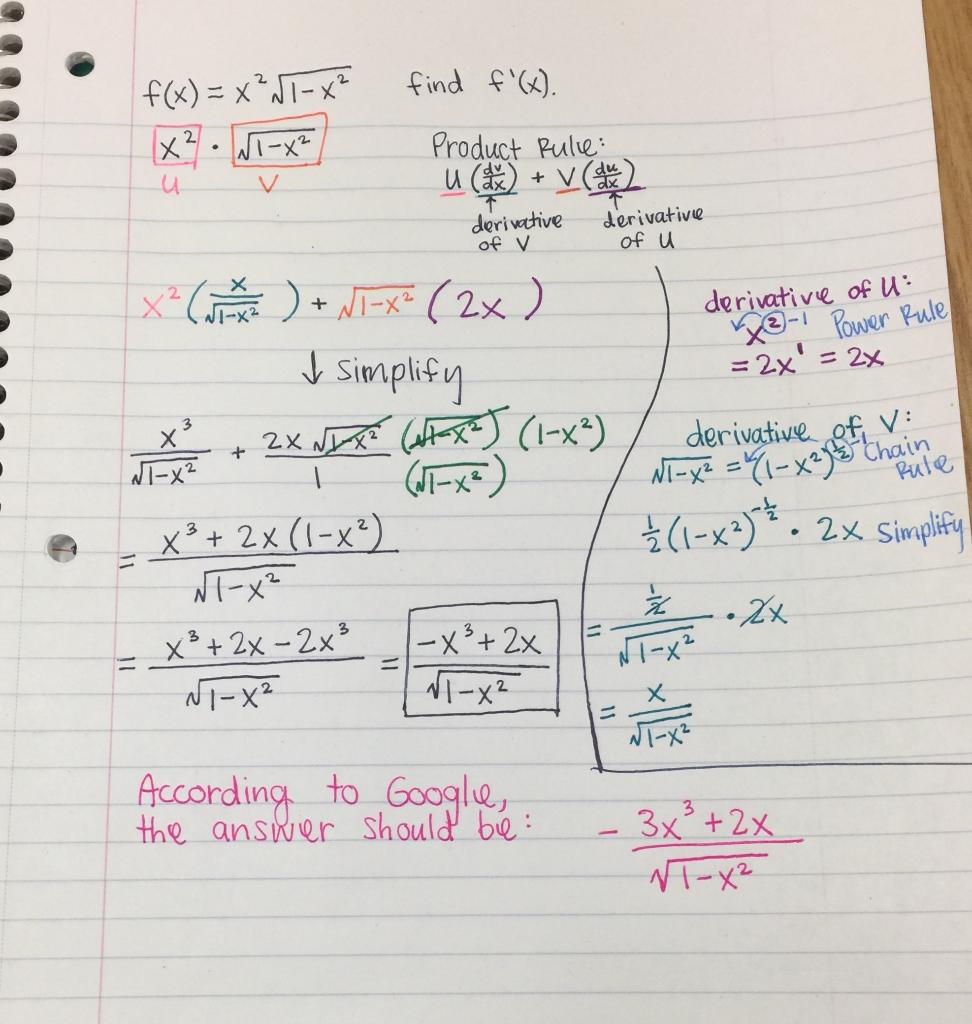 f(x) = x²√(1-x²) find f'(x).
x² · √(1-x²)
u v
Product Rule:
u(dv/dx) + v(du/dx)
↑ ↑
derivative of v
derivative of u
x²(x/√(1-x²)) + √(1-x²)(2x)
↓ simplify
x³/√(1-x²) + 2x√(1-x²)/1 (√(1-x²))/(√(1-x²)) (1-x²)
= (x³ + 2x(1-x²))/√(1-x²)
= (x³ + 2x - 2x³)/√(1-x²) = (-x³ + 2x)/√(1-x²)
derivative of u:
x²⁻¹ Power Rule
= 2x¹ = 2x
derivative of v:
√(1-x²) = (1-x²)^(½-1) Chain Rule
½(1-x²)^(-½) · 2x simplify
= (1/2)/√(1-x²) · 2x
= x/√(1-x²)
According to Google,
the answer should be: - (3x³ + 2x)/√(1-x²)